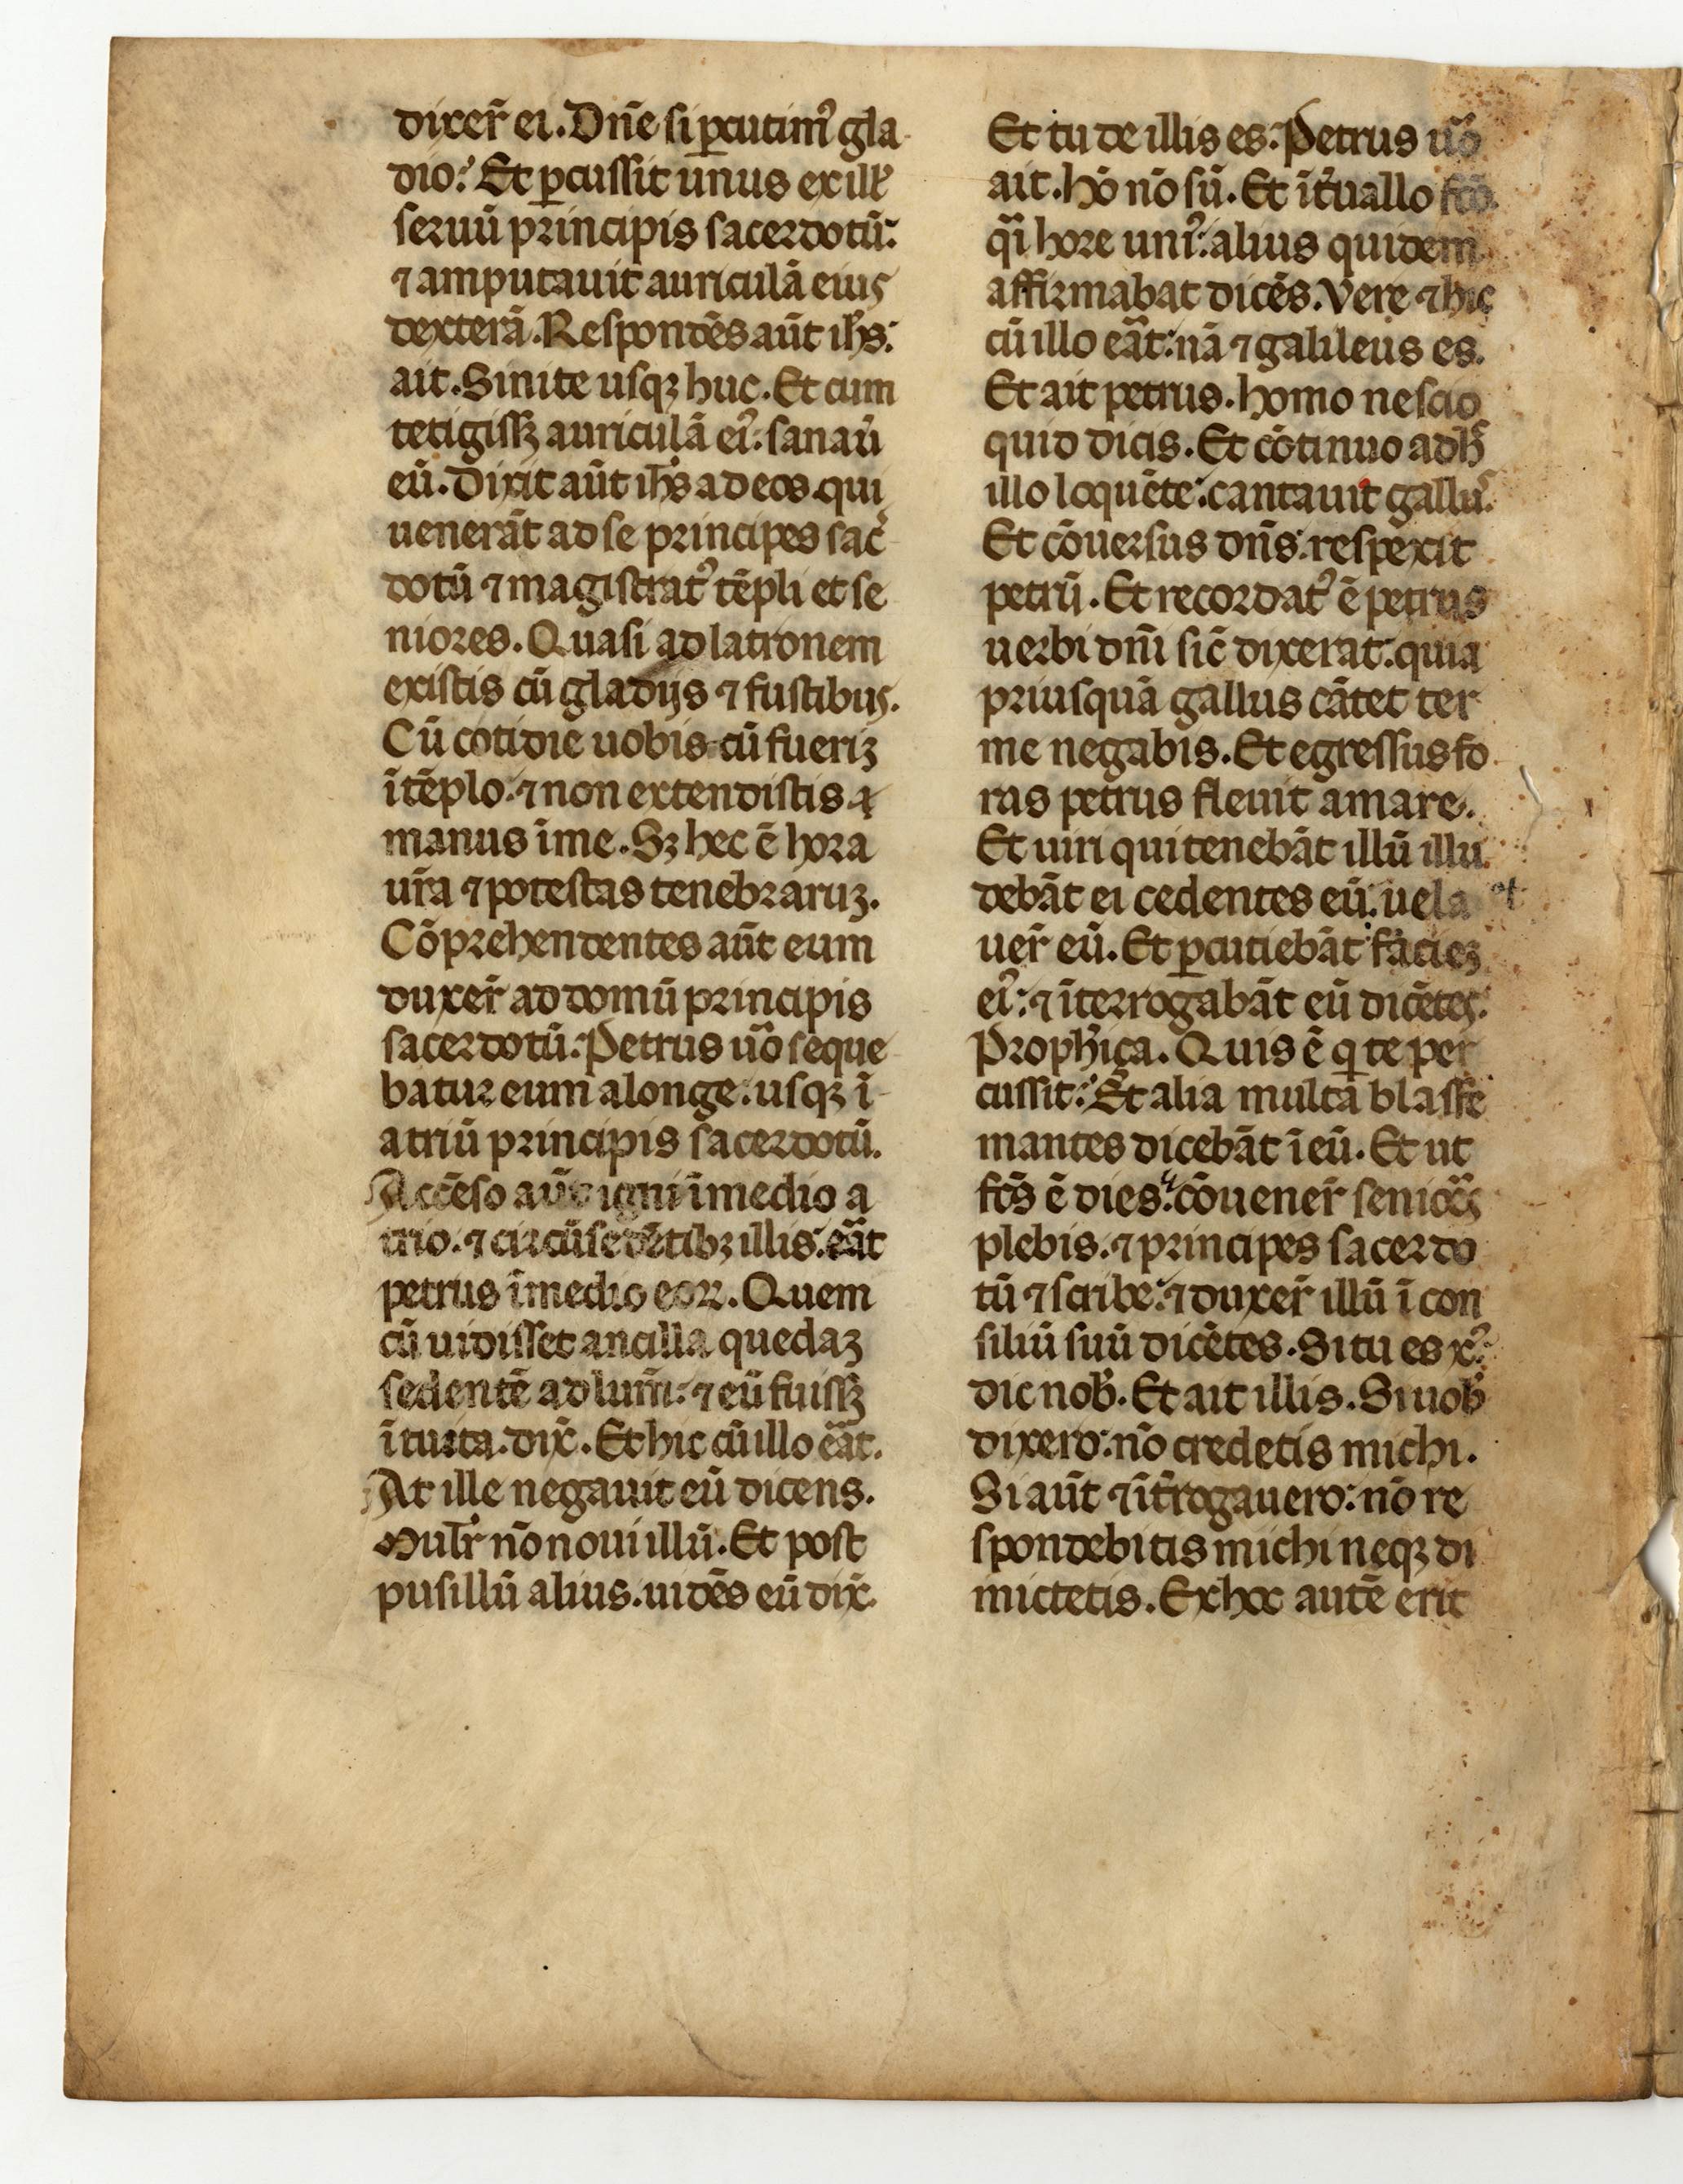 dixer̄ ei. Dn̄e si ꝑcutim᾿ gla
dio? Et ꝑcussit unus ex ill᾿
seruū principis sacerdotū:
⁊ amputauit auriculā eius
dexterā. Respondēs aūt ih̄s:
ait. Sinite usqꝫ huc. Et cum
tetigissꝫ auriculā ei᾿: sanaū
eū. Dixit aūt ih̄s ad eos qui
uenerāt ad se principes sac̄
dotū ⁊ magistrat᾿ tēpli et se
niores. Quasi ad latronem
existis cū gladijs ⁊ fustibus.
Cū cotidie uobiscū fueriꝫ
ī tēplo. ⁊ non extendistis
manus ī me. Sꝫ hec ē hora
ur̄a ⁊ potestas tenebraruꝫ.
Cōprehendentes aūt eum
duxer̄ ad domū principis
sacerdotū. Petrus ūo seque
batur eum alonge: usqꝫ ī
atriū principis sacerdotū.
Accēso aūt igni ī medio a
trio. ⁊ circūsedētibꝫ illis: erat
petrus ī medio eoꝝ. Quem
cū uidisset ancilla quedaꝫ
sedentē ad lum̄: ⁊ eū fuissꝫ
ītuita. dix̄. Et hic cū illo erat.
At ille negauit eū dicens.
Mulr̄ nō noui illū. Et post
pusillū alius. uidēs eū dix̄.
Et tu de illis es. Petrus ūo
ait. hō nō sū. Et īt̄uallo fc̄o
qͣi hore uni᾿: alius quidem
affirmabat dicēs. Vere ⁊ hic
cū illo erat: nā ⁊ galileus es.
Et ait petrus. homo nescio
quid dicis. Et cōtinuo adh᾿
illo loquēte: cantauit gallus.
Et cōuersus dn̄s: respexit
petrū. Et recordat᾿ ē petrus
uerbi dn̄i sic̄ dixerat: quia
priusquā gallus cātet ter
me negabis. Et egressus fo
ras petrus fleuit amare.
Et uiri qui tenebāt illū illu
debāt ei cedentes eū: uela
uer̄ eū. Et ꝑcutiebāt facieꝫ
ei᾿: ⁊ īterrogabāt eū dicētes:
Prophiça. Quis ē q̇ te per
cussit? Et alia multa blasfe
mantes dicebāt ī eū. Et ut
fc̄s ē dies: cōuener̄ seniores
plebis. ⁊ principes sacerdo
tū ⁊ scribe: ⁊ duxer̄ illū ī con
siliū suū dicētes. Si tu es xp̄c:
dic nob᾿. Et ait illis. Si uob᾿
dixero: nō credetis michi.
Si aūt ⁊ īt̄rogauero: nō re
spondebitis michi neqꝫ di
mictetis. Ex hoc autē erit